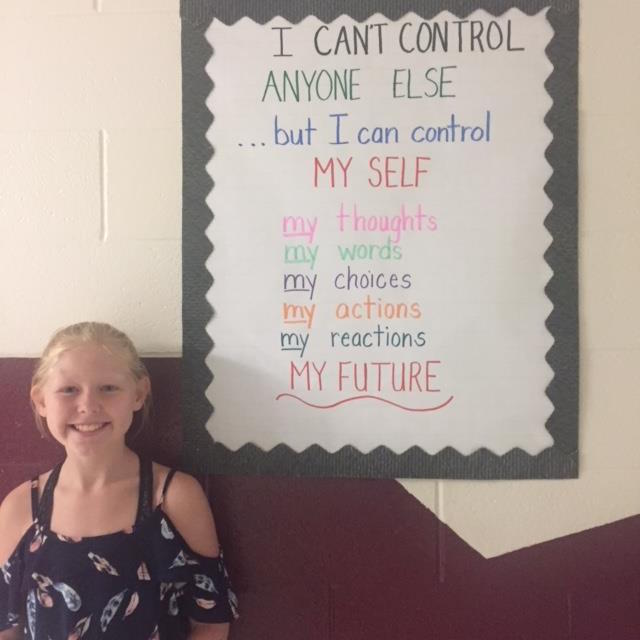 I CAN'T CONTROL
ANYONE ELSE
...but I can control
MY SELF
my thoughts
my words
my choices
my actions
my reactions
MY FUTURE